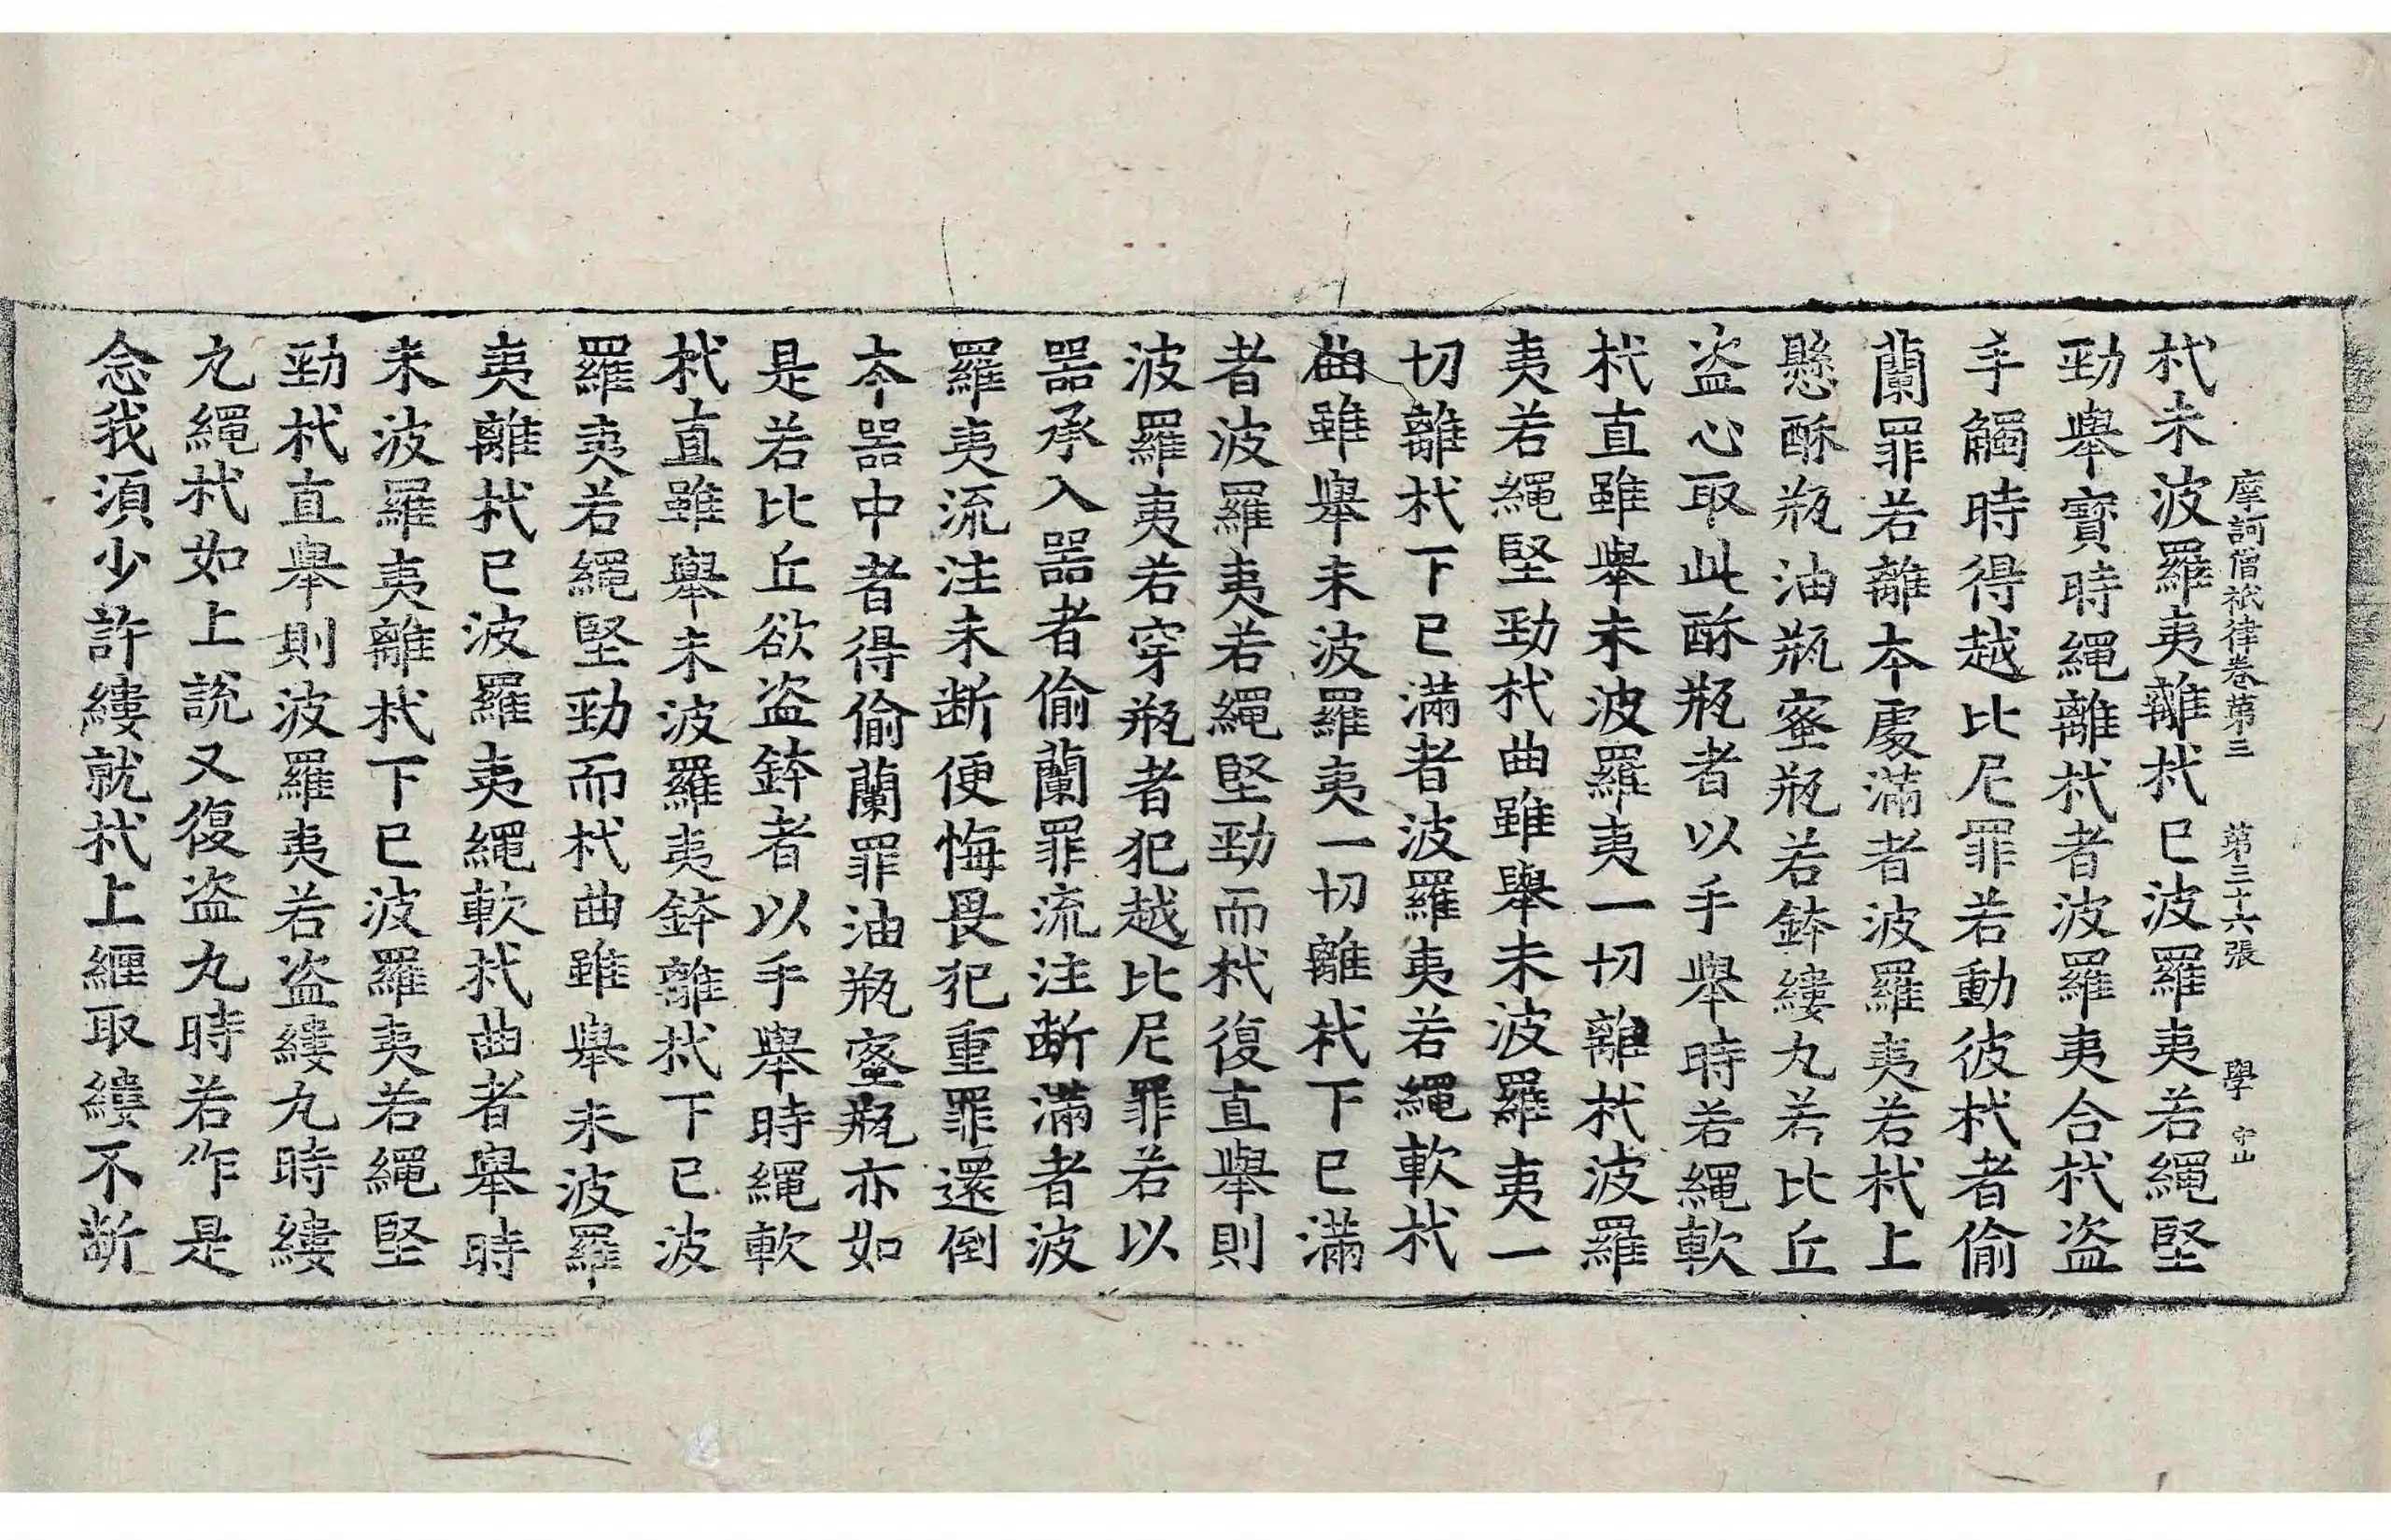 摩訶僧祇律卷第三 第三十六張 學 守山
杙未波羅夷離杙已波羅夷若繩堅
勁舉寶時繩離杙者波羅夷合杙盜
手觸時得越比尼罪若動彼杙者偷
蘭罪若離本處滿者波羅夷若杙上
懸酥瓶油瓶蜜瓶若鉢縷丸若比丘
盜心取此酥瓶者以手舉時若繩軟
杙直雖舉未波羅夷一切離杙波羅
夷若繩堅勁杙曲雖舉未波羅夷一
切離杙下已滿者波羅夷若繩軟杙
曲雖舉未波羅夷一切離杙下已滿
者波羅夷若繩堅勁而杙復直舉則
波羅夷若穿瓶者犯越比尼罪若以
器承入器者偷蘭罪流注斷滿者波
羅夷流注未断便悔畏犯重罪還倒
本器中者得偷蘭罪油瓶蜜瓶亦如
是若比丘欲盜鉢者以手舉時繩軟
杙直雖舉未波羅夷鉢離杙下已波
羅夷若繩堅勁而杙曲雖舉未波羅
夷離杙已波羅夷繩軟杙曲者舉時
未波羅夷離杙下已波羅夷若繩堅
勁杙直舉則波羅夷若盜縷丸時縷
丸繩杙如上說又復盜丸時若作是
念我須少許縷就杙上纒取縷不斷